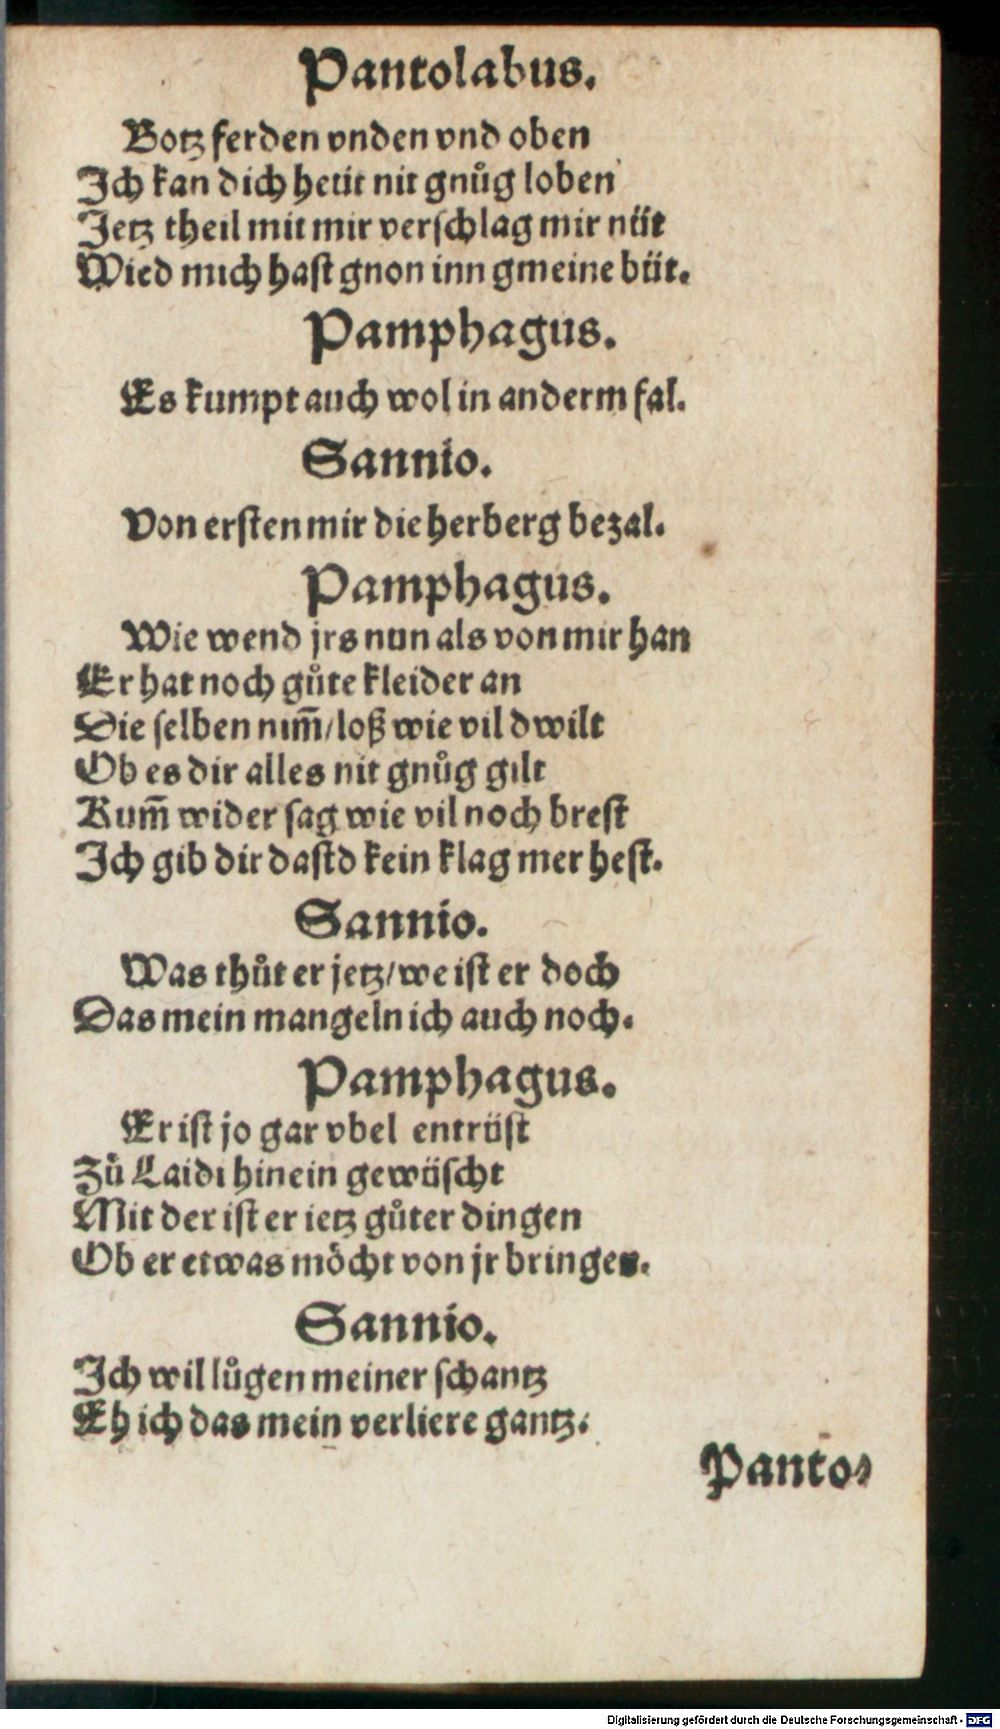 Pantolabus.
Botz ferden vnden vnd oben
Ich kan dich hetit nit gnůg loben
Jetz theil mit mir verschlag mir nüt
Wied mich hast gnon inn gmeine büt.
Pamphagus.
Es kumpt auch wol in anderm fal.
Sannio.
Von ersten mir die herberg bezal.
Pamphagus.
Wie wend jrs nun als von mir han
Er hat noch gůte kleider an
Die selben nim̄/loß wie vil dwilt
Ob es dir alles nit gnůg gilt
Kum̄ wider sag wie vil noch brest
Ich gib dir dastd kein klag mer hest.
Sannio.
Was thůt er jetz/we ist er doch
Das mein mangeln ich auch noch.
Pamphagus.
Er ist jo gar vbel entrüst
Zů Laidi hinein gewüscht
Mit der ist er ietz gůter dingen
Ob er etwas möcht von jr bringen.
Sannio.
Ich wil lůgen meiner schantz
Eh ich das mein verliere gantz.
Panto⸗
Digitalisierung gefördert durch die Deutsche Forschungsgemeinschaft - DFG